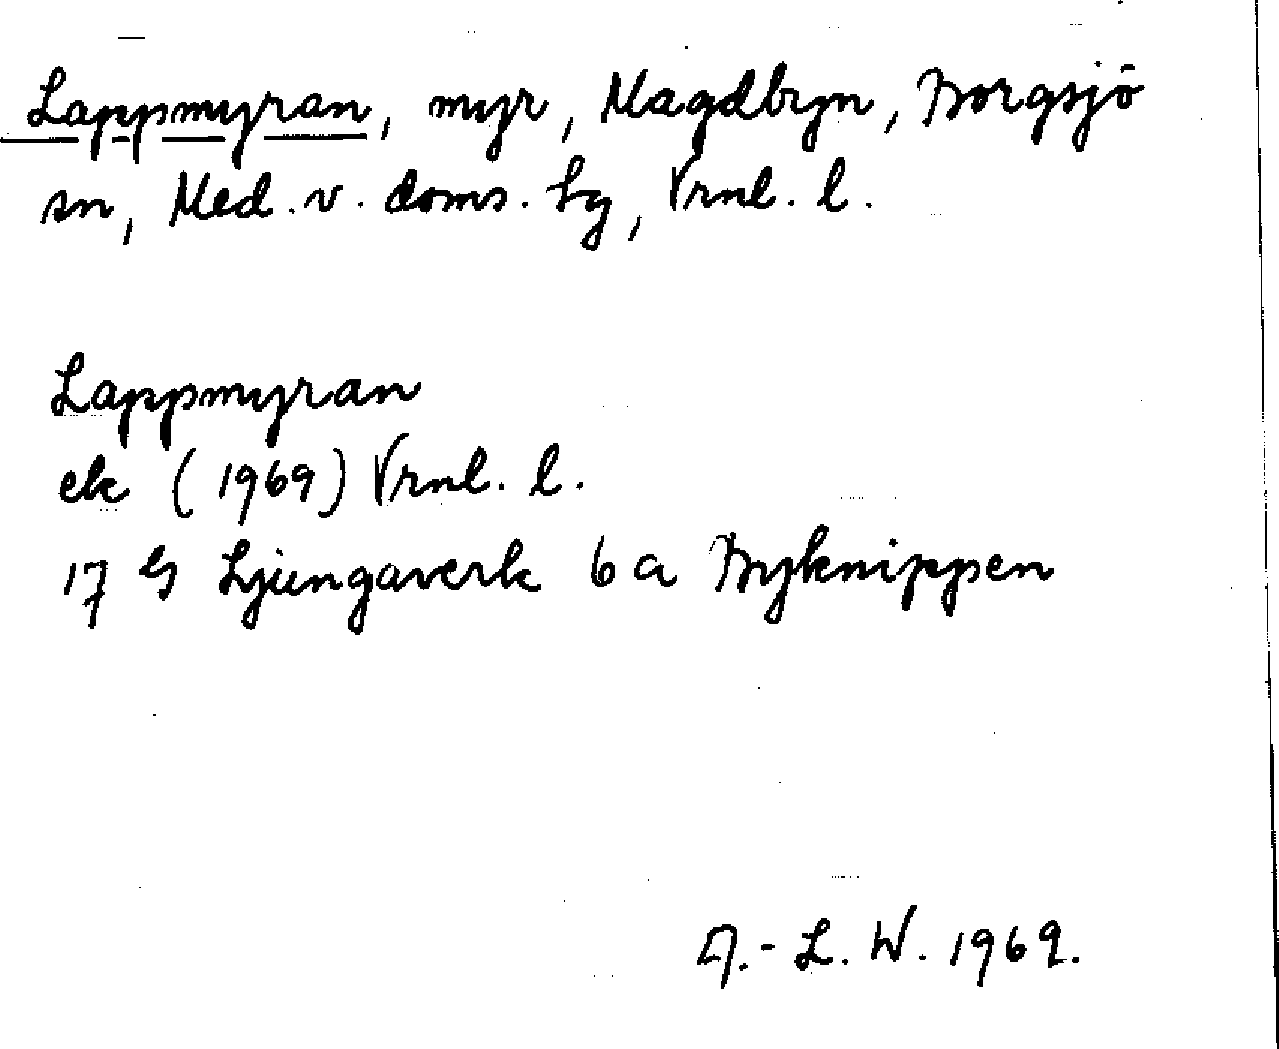 Lappmyran, myr, Magdbyn, Borgsjö
sn, Med. v. doms. hg, Vrnl. l.
Lappmyran
ek (1969) Vrnl. l.
17 G Ljungaverk 6 a Byknippen
A.-L. W. 1969.